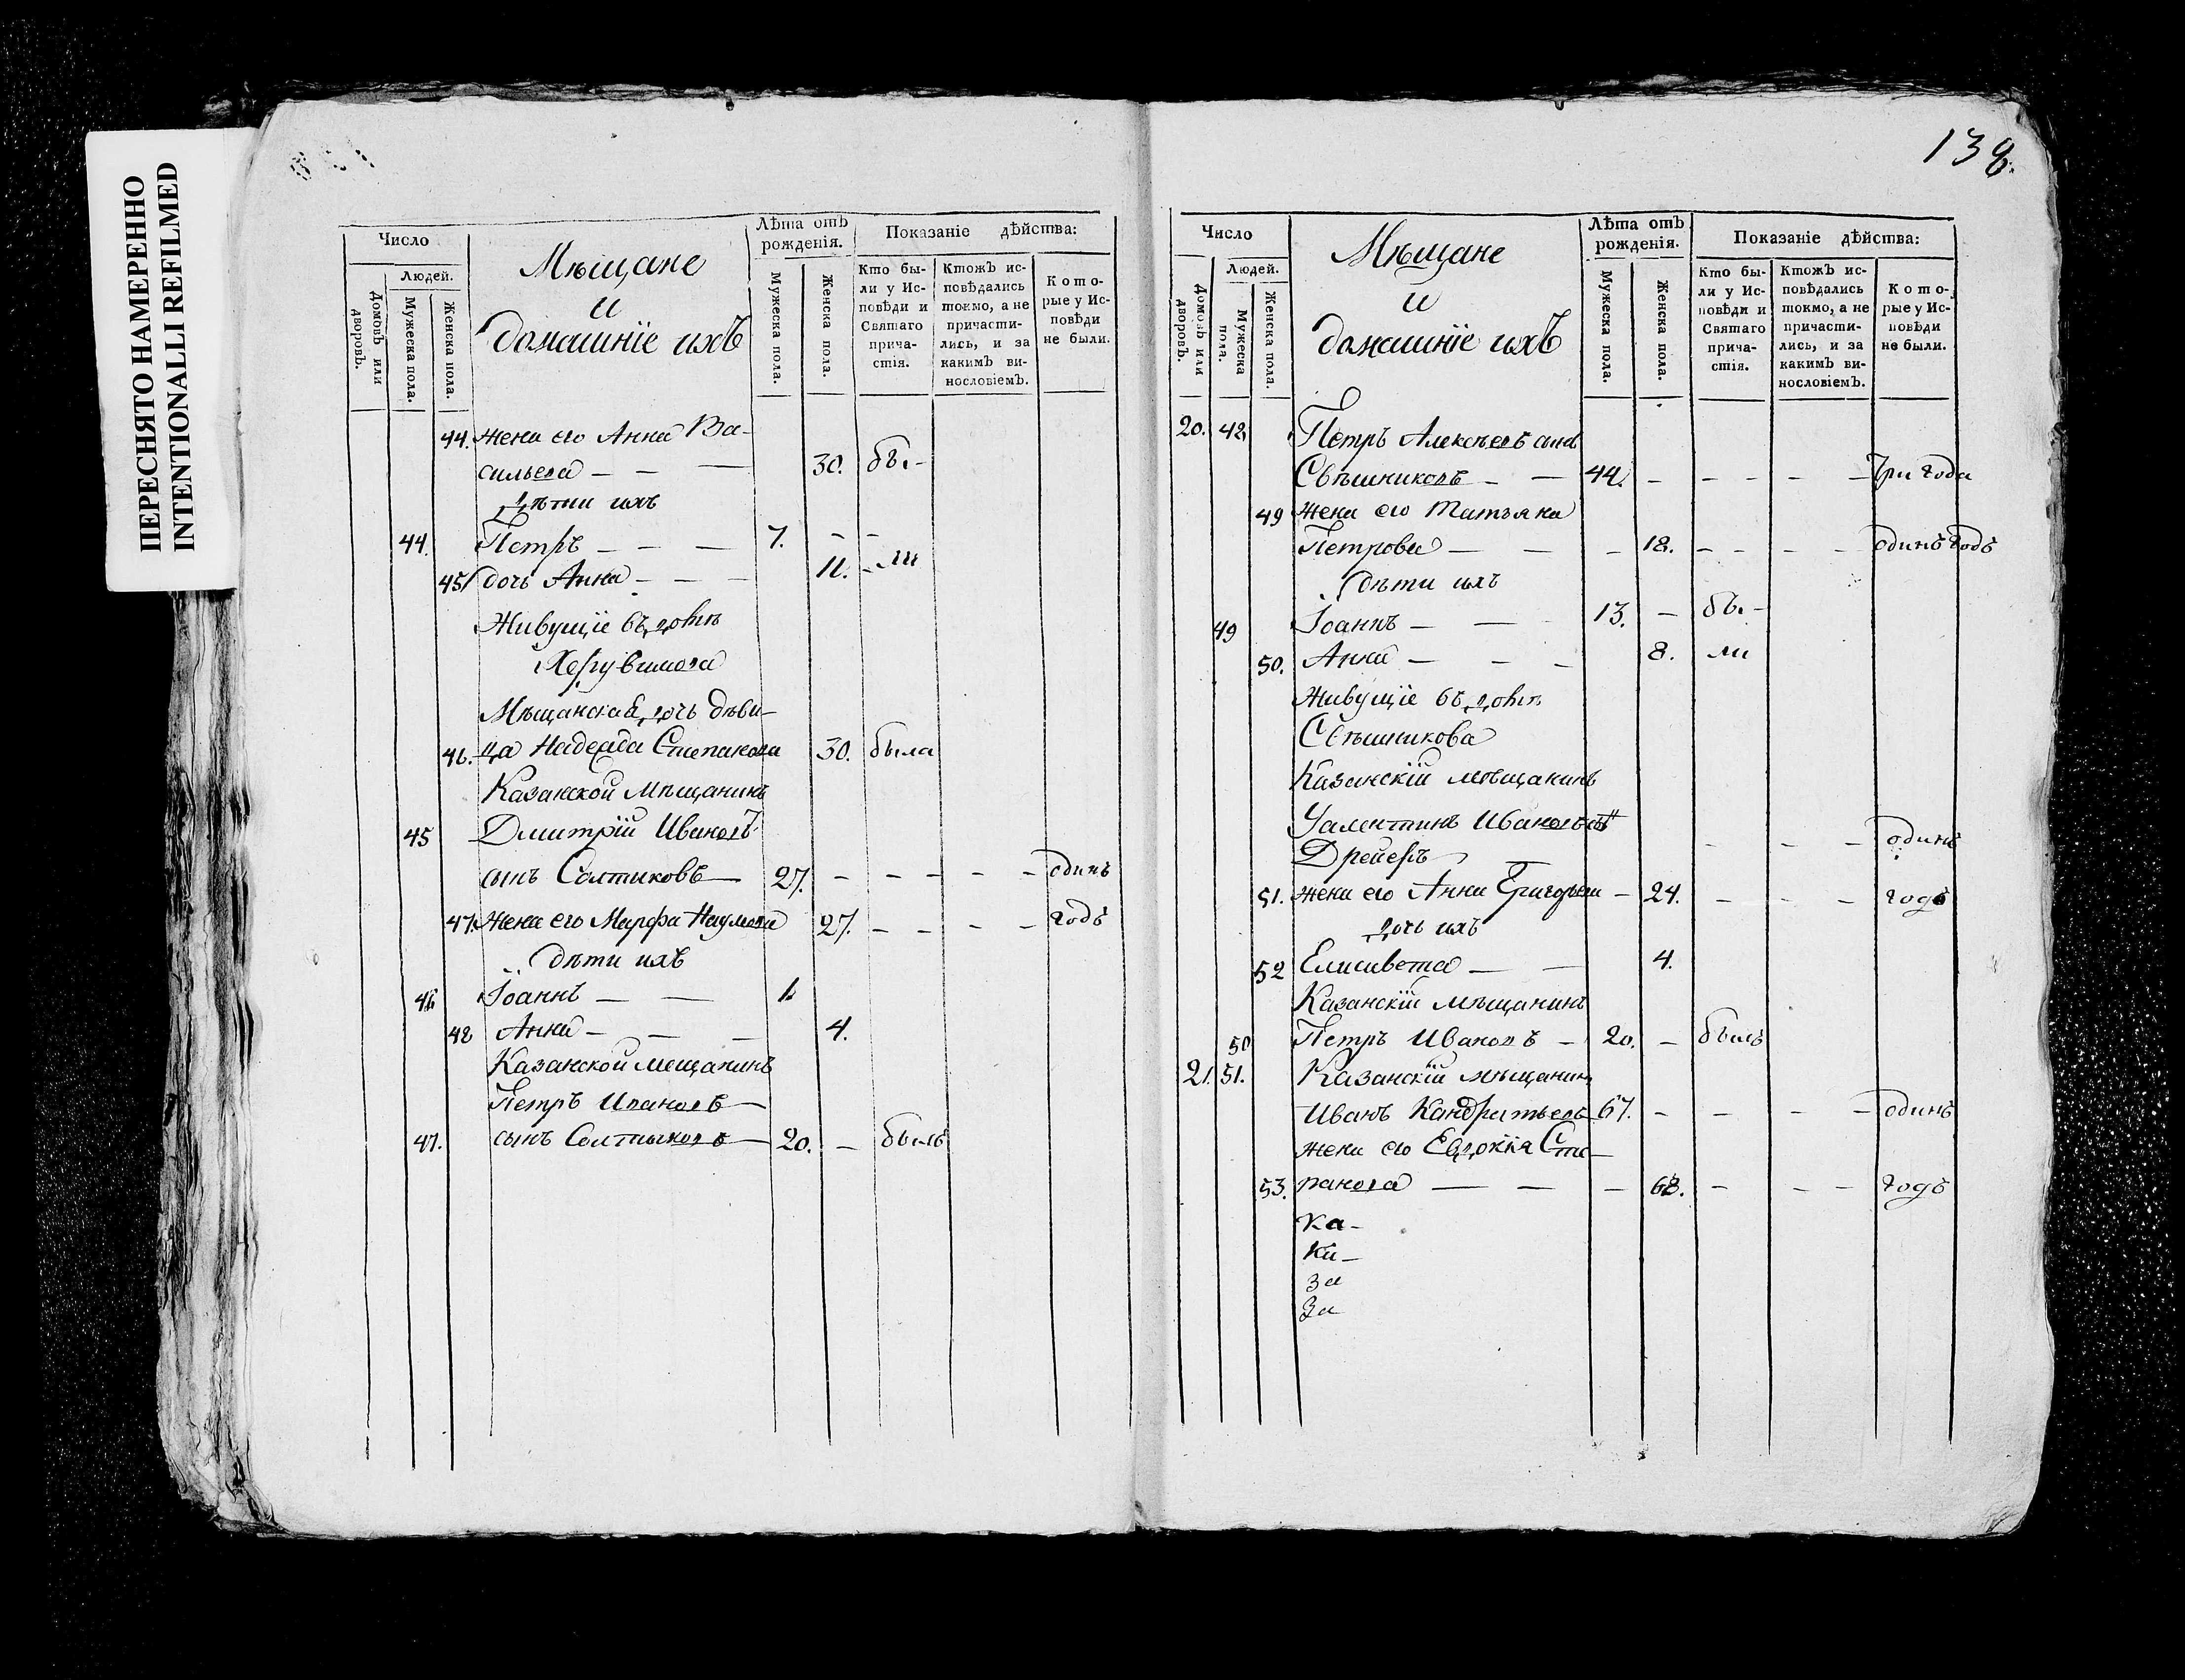 ПЕРЕСНЯТО НАМЕРЕННО
INTENTIONALLI REFILMED
Число
Людей.
Домовъ или дворовъ.
Мужеска пола.
Женска пола.
Мѣщане
и
домашніе ихъ
Лѣта отъ рожденія.
Мужеска пола.
Женска пола.
Показаніе дѣйства:
Кто бы-
ли у Ис-
повѣди и
Святаго
прича-
стія.
Ктожъ ис-
повѣдались
токмо, а не
причасти-
лись, и за
какимъ ви-
нословіемъ.
Кото-
рые у Ис-
повѣди
не были.
44. жена его Анна Ва-
сильева — — — 30. бы-
дѣти ихъ
44. Петръ — — — 7. - -
45 дочь Анна — — — 11. - ли
Живущіе въ домѣ
Херувимова
Мѣщанская дочь дѣви-
46. ца Надежда Степанова 30. была
Казанской Мѣщанинъ
45 Дмитрій Ивановъ
сынъ Солтиковъ — 27. — — — — — одинъ
47. Жена его Марфа Наумова 27. — — — — годъ
дѣти ихъ
46 Іоаннъ — — 1
48 Анна — — — 4.
Казанской мещанинъ
Петръ Ивановъ —
47. сынъ Солтыковъ — 20. — былъ
138.
Число
Людей.
Домовъ или дворовъ.
Мужеска пола.
Женска пола.
Мѣщане
и
домашніе ихъ
Лѣта отъ рожденія.
Мужеска пола.
Женска пола.
Показаніе дѣйства:
Кто бы-
ли у Ис-
повѣди и
Святаго
прича-
стія.
Ктожъ ис-
повѣдались
токмо, а не
причасти-
лись, и за
какимъ ви-
нословіемъ.
Кото-
рые у Ис-
повѣди
не были.
20. 48 Петръ Алексѣевъ сынъ
Свѣшниковъ — — 44. — — — — — Три года
49 жена его Татьяна
Петрова — — — 18. — — — — одинъ годъ
дѣти ихъ
49 Іоаннъ — — 13. — бы-
50. Анна — — — 8. ли
Живущіе въ домѣ
Свѣшникова
Казанскій мѣщанинъ
Ивановъ
Дрейеръ — — — — — одинъ
51. жена его Анна Григорьева — 24. — — — годъ
дочь ихъ
52 Елисавета — — 4.
Казанскій мѣщанинъ
50 Петръ Ивановъ — 20. — былъ
21. 51. Казанскій мѣщанинъ
Иванъ Кандратьевъ 67. — — — — одинъ
жена его Евдокія Сте-
53. панова — — — 68. — — — годъ
ка-
ка-
за
за